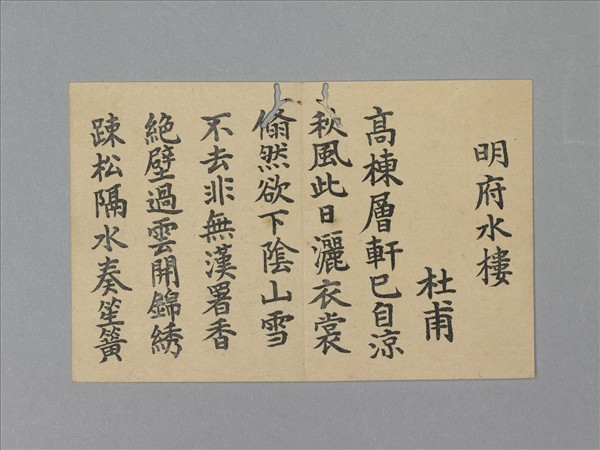 明府水樓
杜甫
高棟層軒已自涼
秋風此日灑衣裳
翛然欲下陰山雪
不去非無漢署香
絶壁過雲開錦綉
踈松隔水奏笙簧